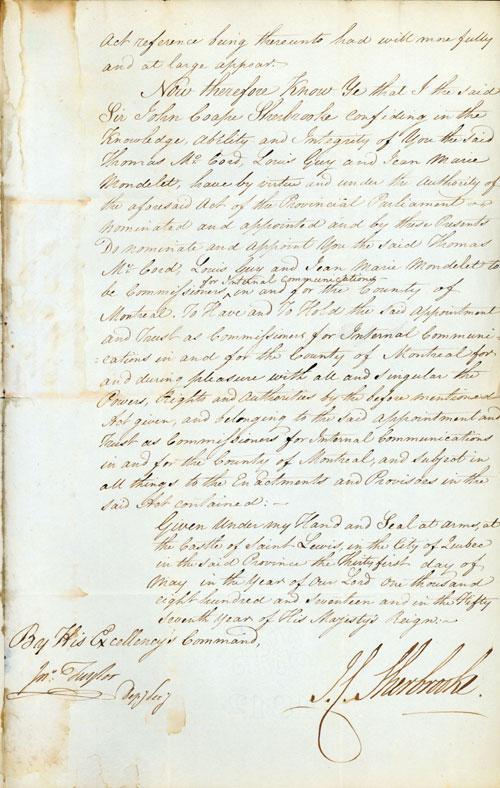 Act reference being thereunto had will more fully
and at large appear.
Now therefore Know Ye that I the said
Sir John Coape Sherbrooke confiding in the
Knowledge, Ability and Integrity of You the said
Thomas Mc Cord, Louis Guy and Jean Marie
Mondelet, have by virtue and under the Authority of
the aforesaid Act of the Provincial Parliament
nominated and appointed and by these Presents
Do nominate and appoint You the said Thomas
Mc Cord, Louis Guy and Jean Marie Mondelet to
for Internal Communications
be Commissioners in and for the County of
Montreal. To Have and To Hold the said Appointment
and Trust as Commissioners for Internal Communi-
-cations in and for the County of Montreal for
and during pleasure with all and singular the
Powers, Rights and Authorities by the before mentioned
Act given, and belonging to the said appointment and
Trust as Commissioners for Internal Communications
in and for the County of Montreal, and subject in
all things to the Enactments and Provisoes in the
said Act contained: —
Given Under my Hand and Seal at Arms, at
the Castle of Saint Lewis, in the City of Quebec
in the said Province the thirty first day of
May in the Year of Our Lord One thousand
eight hundred and seventeen and in the Fifty
Seventh Year of His Majesty's Reign. —
By His Excellency's Command,
Jno. Taylor
Depy Secy
J.C. Sherbrooke.